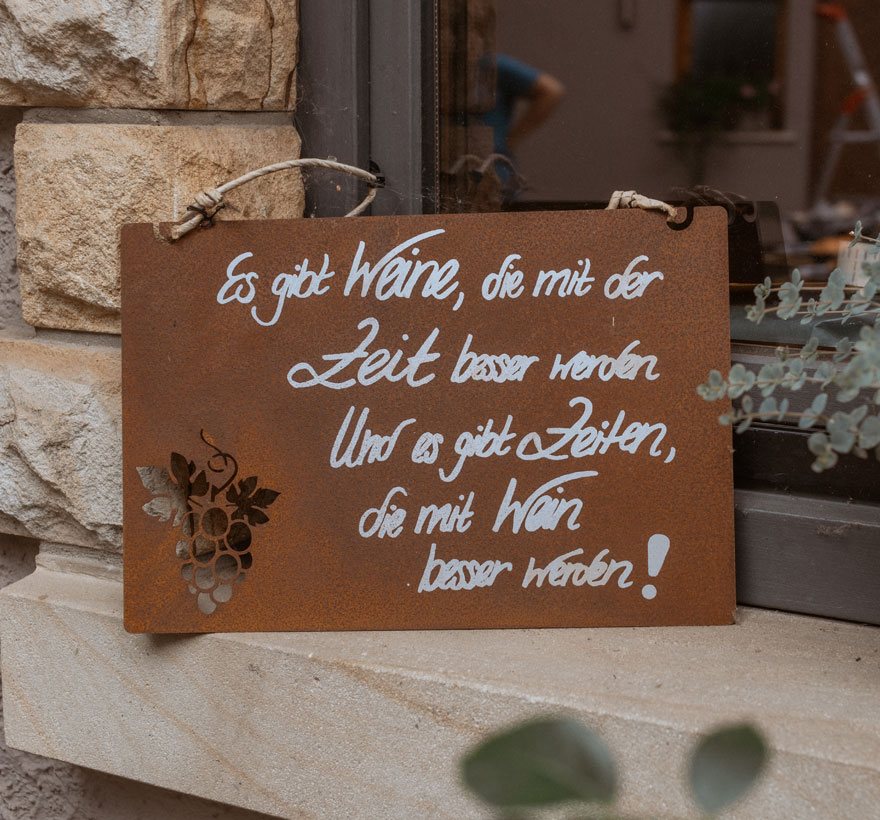 Es gibt Weine, die mit der
Zeit besser werden
Und es gibt Zeiten,
die mit Wein
besser werden!